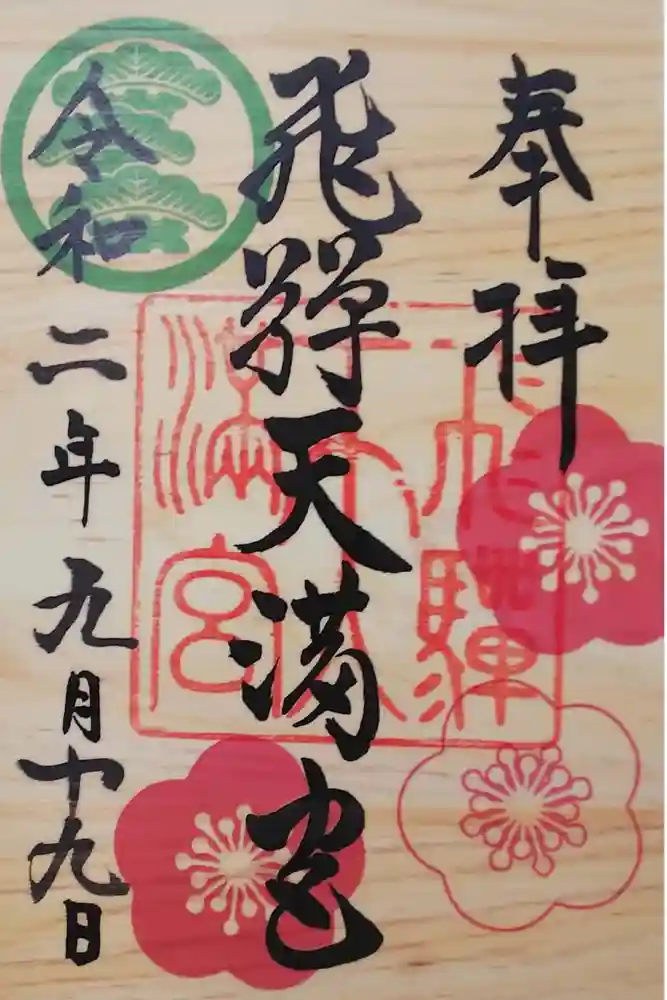 奉拝
飛騨天満宮
令和二年九月十九日
飛騨天満宮